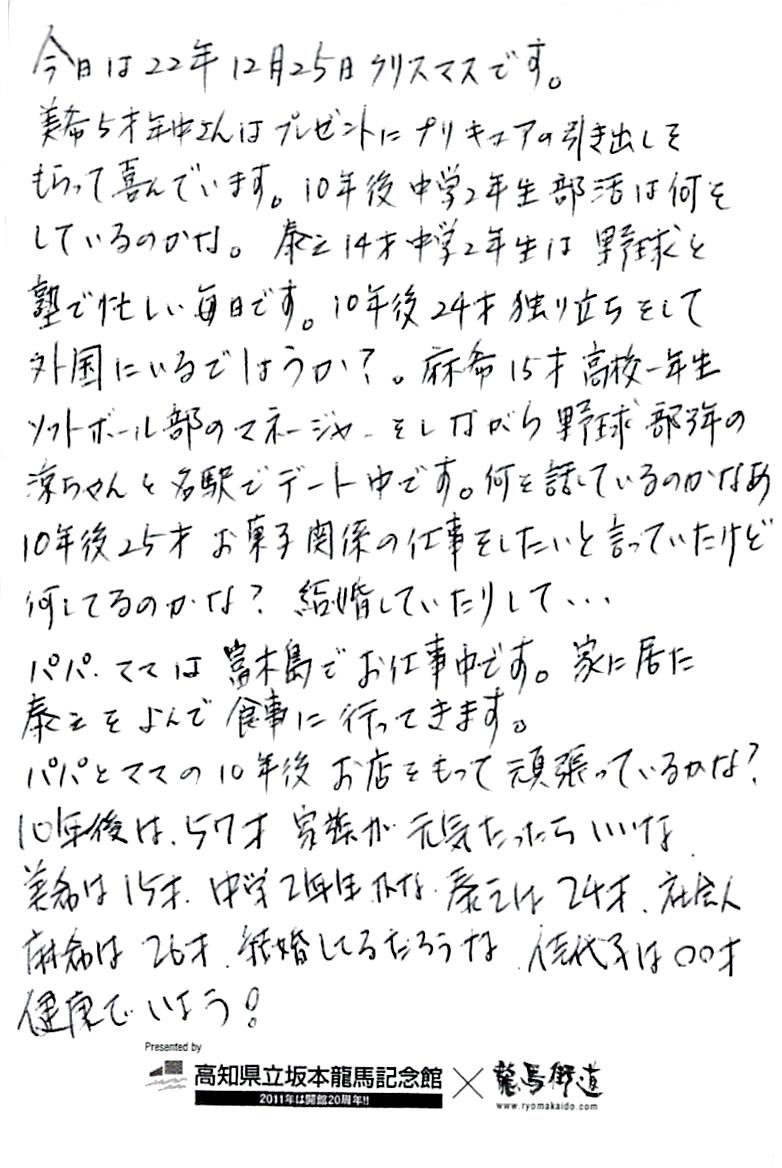 今日は22年12月25日クリスマスです。
美希5才年中さんはプレゼントにプリキュアの引き出しを
もらって喜んでいます。10年後中学2年生部活は何を
しているのかな。泰之14才中学2年生は野球と
塾で忙しい毎日です。10年後24才独り立ちをして
外国にいるでしょうか?。麻希15才高校一年生
ソフトボール部のマネージャーをしながら野球部3年の
涼ちゃんと名駅でデート中です。何を話しているのかなあ
10年後25才お菓子関係の仕事をしたいと言っていたけど
何してるのかな?結婚していたりして・・・
パパ.ママは富木島でお仕事中です。家に居た
泰之をよんで食事に行ってきます。
パパとママの10年後お店をもって頑張っているかな?
10年後は、57才家族が元気だったらいいな
美希は15才.中学2年生かな.泰之は24才、社会人
麻希は26才、結婚してるだろうな.佳代子は〇〇才
健康でいよう!
Presented by
高知県立坂本龍馬記念館×龍馬街道
2011年は開館20周年!!
www.ryomakaido.com